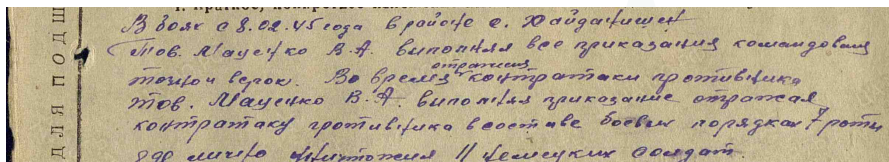 В боях с 8.02.45 года в районе с. Хайданишен
тов. Маценко В.А. выполнял все приказания командования
точно и верой. Во время отражения контратаки противника
тов. Маценко В.А. выполняя приказание отражая
контратаку противника в составе боевых порядков 7 роты
где лично уничтожил 11 немецких солдат.
ДЛЯ ПОДШ